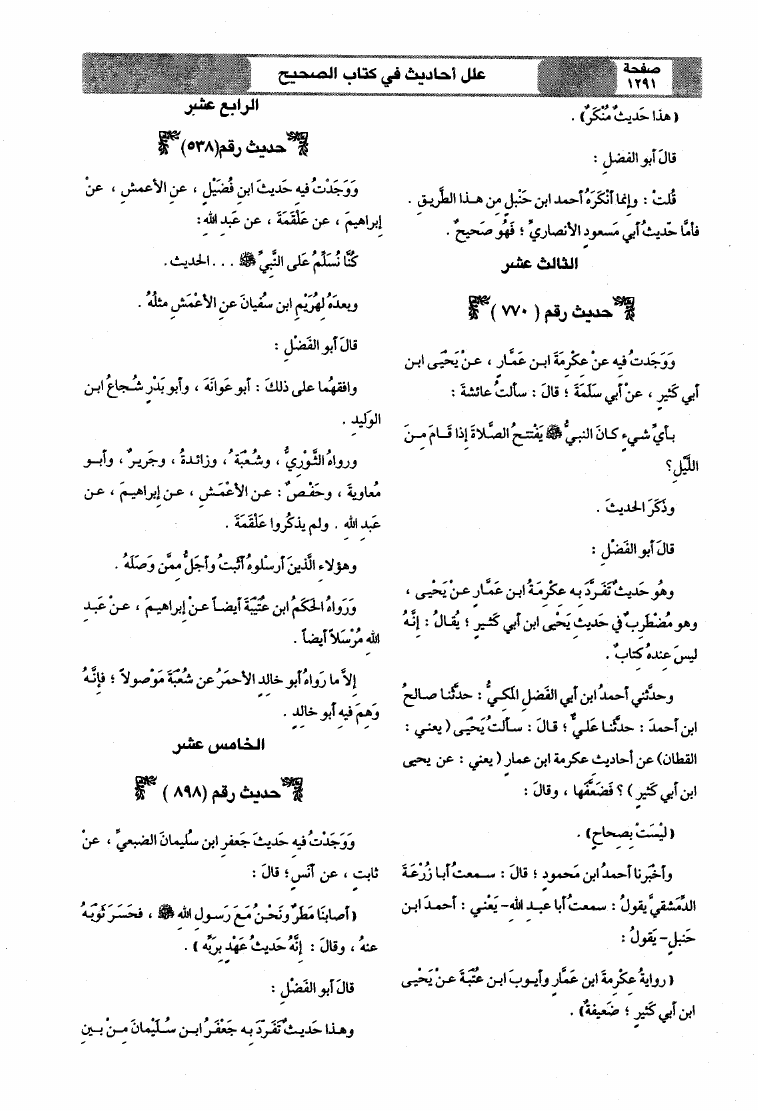 صفحة
١٢٩١
علل أحاديث في كتاب الصحيح
(هذا حَديثٌ مُنْكَرٌ) .
قالَ أبو الفضل :
قُلتْ : وإنما أنْكَرَهُ أحمد ابن حَنْبلٍ مِن هـذا الطَّريقِ .
فأمَّا حّديثُ أبي مَسعودٍ الأنصاريِّ ؛ فَهُو صَحيحٌ .
الثالث عشر
حديث رقم ( ٧٧٠ )
وَوَجَدتُ فيه عنْ عِكرمَةَ ابـن عَمَّـارٍ ، عـنْ يَحْيَى ابن
أبي كَثيرٍ ، عنْ أبي سَلَمَةَ ؛ قالَ : سألتُ عائشةَ :
بـأيِّ شيءٍ كـانَ النبيُّ ﷺ يَفْتتـحُ الصَّلاةَ إذا قـامَ مِـنَ
اللَّيْلِ؟
وذَكَرَ الحديثَ .
قالَ أبو الفَضْلِ :
وهُو حَديثٌ تَفَرَّدَ بِه عكْرمَةُ ابـن عَمَّـار عـنْ يَحْيـى ،
وهو مُضْطَربٌ في حَديثِ يَحْيْى ابن أبي كثيـرٍ ؛ يُقـالُ : إنَّـهُ
ليسَ عِندهُ كتابٌ .
وحدَّثني أحمدُ ابن أبي الفَضلِ المكـيُّ : حدَّثنـا صـالحُ
ابن أحمدَ : حدَّثنـا عَليٌّ ؛ قـالَ : سـألتُ يَحْيَـى (يعنـي :
القطان) عن أحاديث عكرمة ابن عمارٍ (يعني : عن يحيى
ابن أبي كثيرٍ ) ؟ فَضَعَّفها ، وقالَ :
(ليْسَتْ بِصحاحٍ) .
وأخبَرنا أحمدُ ابن مَحمودٍ ؛ قالَ : سـمعتُ أبـا زُرْعَـةَ
الدِّمَشقيَّ يقولُ : سمعتُ أبا عبـدِ الله- يَعْني : أحمـدَ ابـن
حَنبلٍ- يَقولُ :
(روايةُ عِكْرِمةَ ابن عَمَّارٍ وأيـوبَ ابـن عُتبَـةَ عـنْ يَحْيى
ابن أبي كَثيْرٍ ؛ ضَعيفةٌ) .
الرابع عشر
حديث رقم(٥٣٨)
وَوَجَدْتُ فيه حَديثَ ابنِ فُضَيْلٍ ، عَنِ الأعمشِ ، عَنْ
إبراهيمَ ، عن عَلْقمَةَ ، عن عَبدِ اللهِ:
كُنَّا نُسَلِّمُ عَلى النَّبيِّ ﷺ . . . الحديث .
وبعدَهُ لِهُرَيْمِ ابن سُفيانَ عنِ الأعْمَشِ مثلُهُ .
قالَ أبو الفَضْلِ :
وافقهُما على ذلكَ : أبو عَوانَةَ ، وأبو بَدْرٍ شُـجاعُ ابـن
الوَليد .
ورواهُ الثَّـوْريُّ ، وشُـعْبَةُ ، وزائـدةُ ، وجَريـرٌ ، وأبـو
مُعاويةَ ، وحَفْـصٌ : عـن الأعْمَـشِ ، عـن إبراهيـمَ ، عـن
عَبدِ اللهِ . ولم يذكُروا عَلْقَمَةَ .
وهؤلاءِ الَّذينَ أرسلُوهُ أثبتُ وأجَلُّ ممَّن وَصَلَهُ .
وَرَواهُ الحَكمُ ابن عُتَيْبَةَ أيضـاً عـنْ إبراهيـمَ ، عـنْ عَبـدِ
اللهِ مُرْسَلاً أيضاً .
إلاَّ ما رَواهُ أبو خالِدٍ الأحمَرُ عن شُعْبَةَ مَوْصولاً ؛ فإنَّـهُ
وَهِمَ فيهِ أبو خالِدٍ .
الخامس عشر
حديث رقم (٨٩٨ )
وَوَجَدْتُ فيه حَديثَ جَعفرِ ابن سُليمانَ الضبعيِّ ، عَنْ
ثابتٍ ، عن أنَسٍ؛ قالَ :
(أصابنَا مَطَرٌ ونَحْـنُ مَـعَ رَسـولِ اللهِ ﷺ ، فحَسَـرَ ثوْبَـهُ
عنهُ ، وقالَ : إنَّهُ حَديثُ عَهْدٍ بِرَبِّه ) .
قالَ أبو الفَضْلِ :
وهـذا حَديـثٌ تَفَـرَدَ بـه جَعْفَـرُ ابـن سُـلَيْمانَ مِـنْ بيـنِ